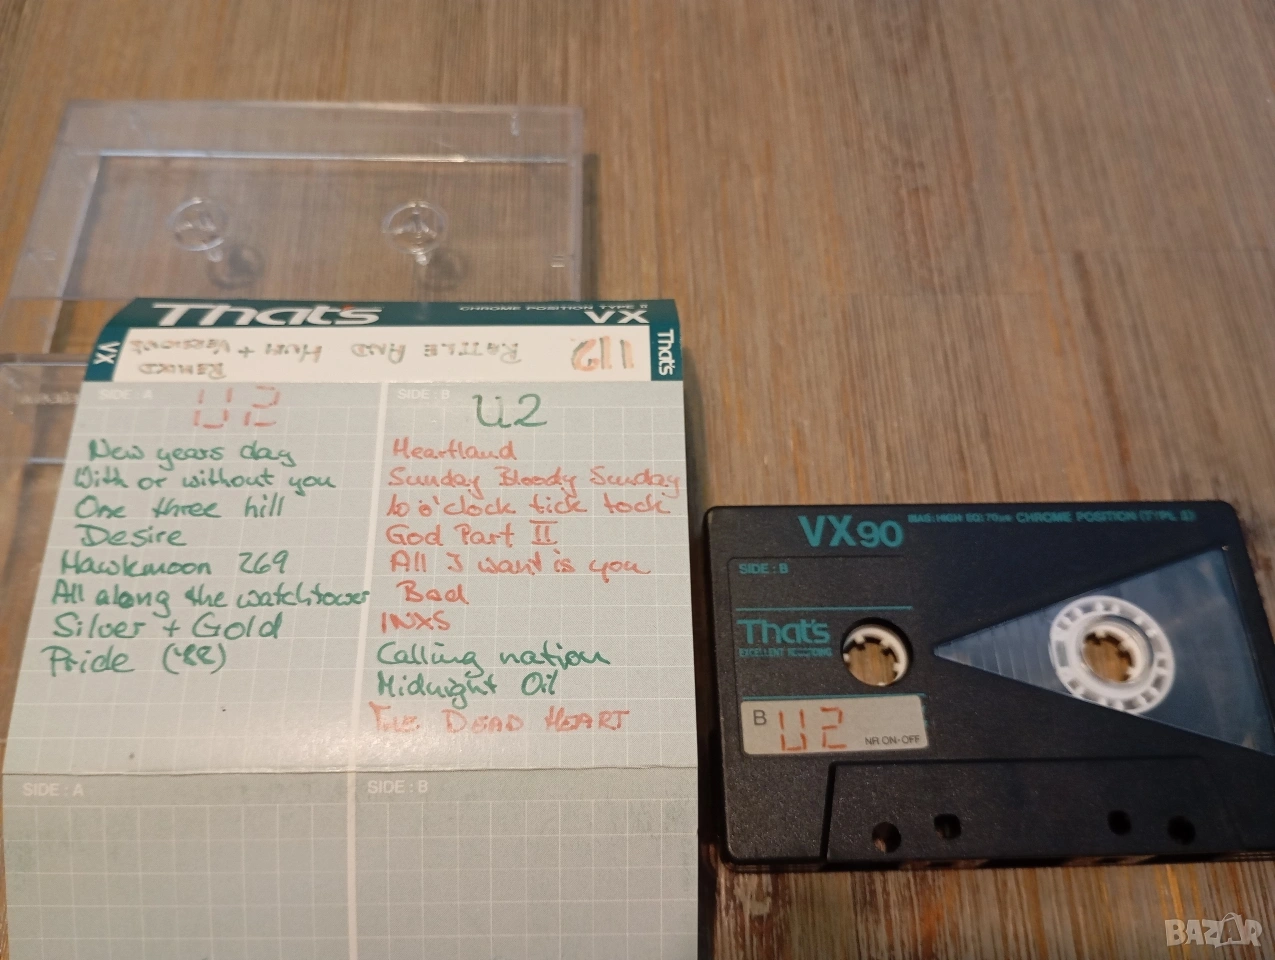 That's
CHROME POSITION TYPE II
VX
VX
U2 RATTLE AND HUM + VERSIONS
REMIXED
That's
SIDE : A
U2
New years day
With or without you
One three hill
Desire
Hawkmoon 269
All along the watchtower
Silver + Gold
Pride ('88)
SIDE : B
U2
Heartland
Sunday Bloody Sunday
10 o'clock tick tock
God Part II
All I want is you
Bad
INXS
Calling nation
Midnight Oil
THE DEAD HEART
SIDE : A
SIDE : B
VX90
BIAS: HIGH EQ: 70µs CHROME POSITION (TYPE II)
SIDE : B
That's
EXCELLENT RECORDING
B U2
NR ON-OFF
BAZAR